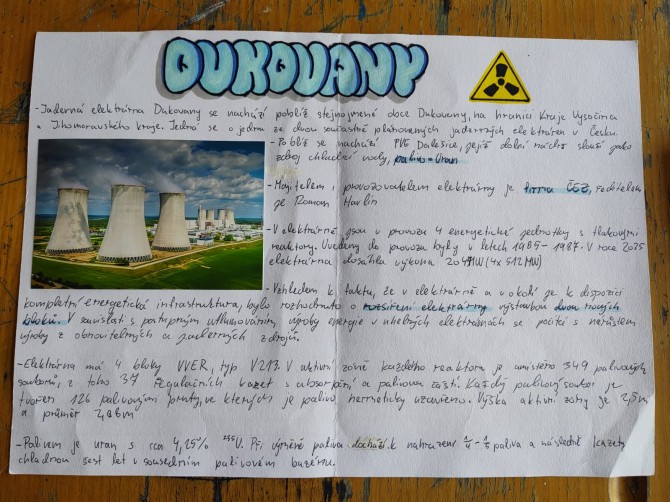 DUKOVANY
- Jaderná elektrárna Dukovany se nachází poblíž stejnojmené obce Dukovany, na hranici Kraje Vysočina
a Jihomoravského kraje. Jedná se o jednu ze dvou součastně plánovaných jaderných elektráren v Česku.
- Poblíž se nachází PVE Dalešice, jejíž dolní nádrž slouží jako
zdroj chladící vody, palivo = Uran
- Majitelem i provozovatelem elektrárny je firma ČEZ, ředitelem
je Roman Havlín
- V elektrárně jsou v provozu 4 energetické jednotky s tlakovými
reaktory. Uvedeny do provozu byly v letech 1985 - 1987. V roce 2025
elektrárna dosáhla výkonu 2048MW (4x 512MW)
- Vzhledem k faktu, že v elektrárně a v okolí je k dispozici
kompletní energetická infrastruktura, bylo rozhodnuto o rozšíření elektrárny výstavbou dvou nových
bloků. V souvislosti s postupným utlumováním výroby energie v uhelných elektrárnách se počítá s nárůstem
výroby z obnovitelných a jaderných zdrojů.
- Elektrárna má 4 bloky VVER, typ V213. V aktivní zóně každého reaktoru je umístěno 349 palivových
souborů, z toho 37 regulačních kazet s absorpční a palivovou částí. Každý palivový soubor je
tvořen 126 palivovými pruty, ve kterých je palivo hermeticky uzavřeno. Výška aktivní zóny je 2,5m
a průměr 2,88m
- Palivem je uran s cca 4,25% ²³⁵U. Při výměně paliva dochází k nahrazení 1/4 - 1/5 paliva a následně kazety
chladnou šest let v sousedním palivovém bazénu.